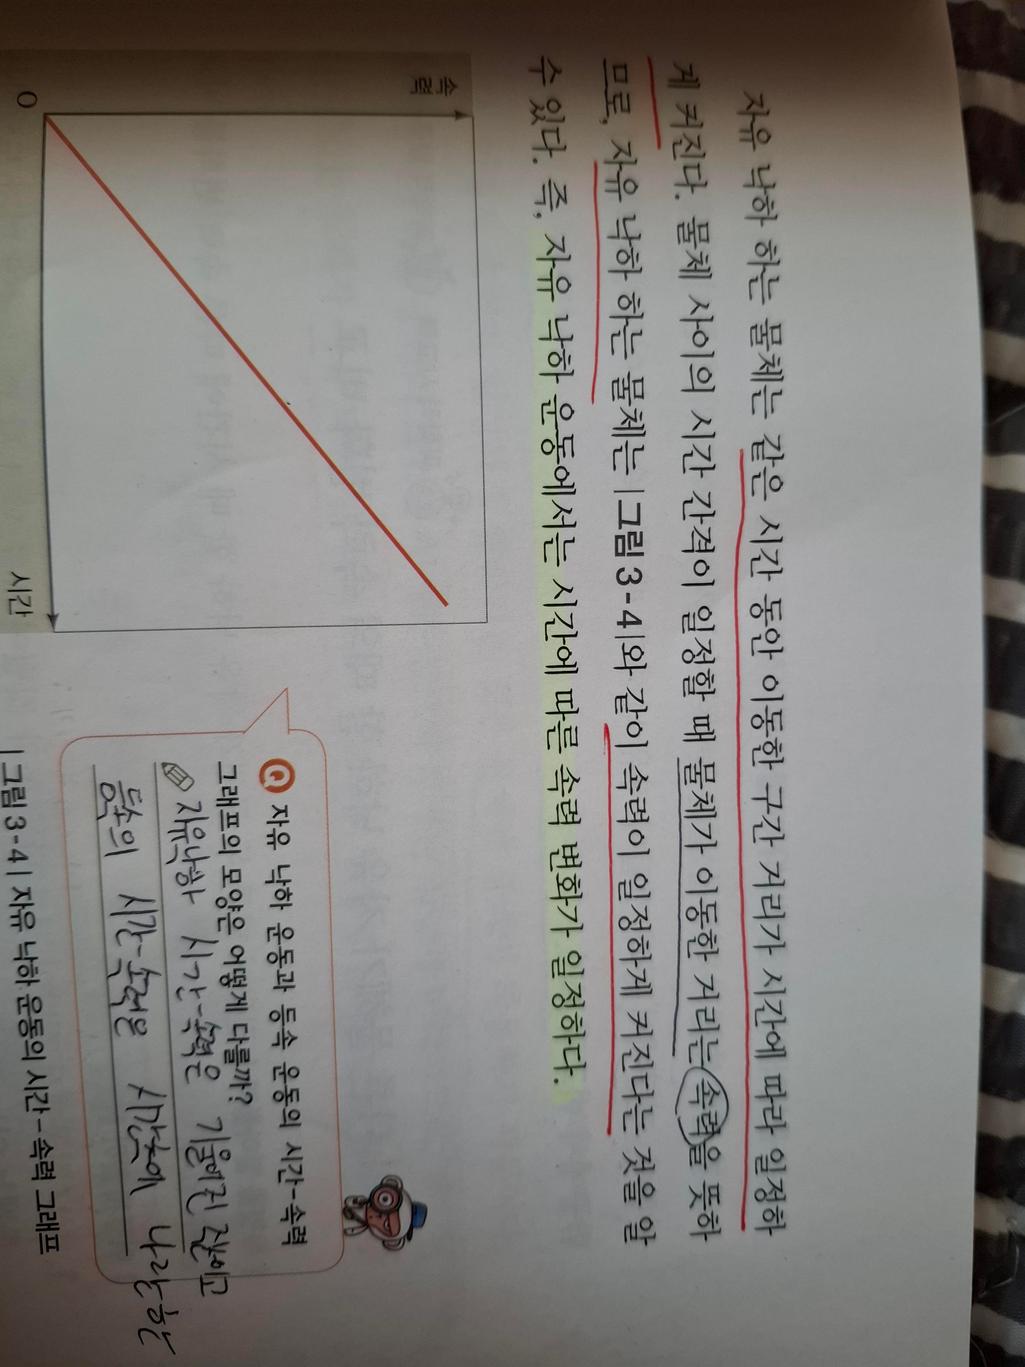 자유 낙하 하는 물체는 같은 시간 동안 이동한 구간 거리가 시간에 따라 일정하
게 커진다. 물체 사이의 시간 간격이 일정할 때 물체가 이동한 거리는 속력을 뜻하
므로, 자유 낙하 하는 물체는 |그림 3-4|와 같이 속력이 일정하게 커진다는 것을 알
수 있다. 즉, 자유 낙하 운동에서는 시간에 따른 속력 변화가 일정하다.
속력
O
시간
Q 자유 낙하 운동과 등속 운동의 시간-속력
그래프의 모양은 어떻게 다를까?
자유낙하 시간-속력은 기울어진 직선이고
등속의 시간-속력은 시간축에 나란한
|그림 3-4| 자유 낙하 운동의 시간-속력 그래프